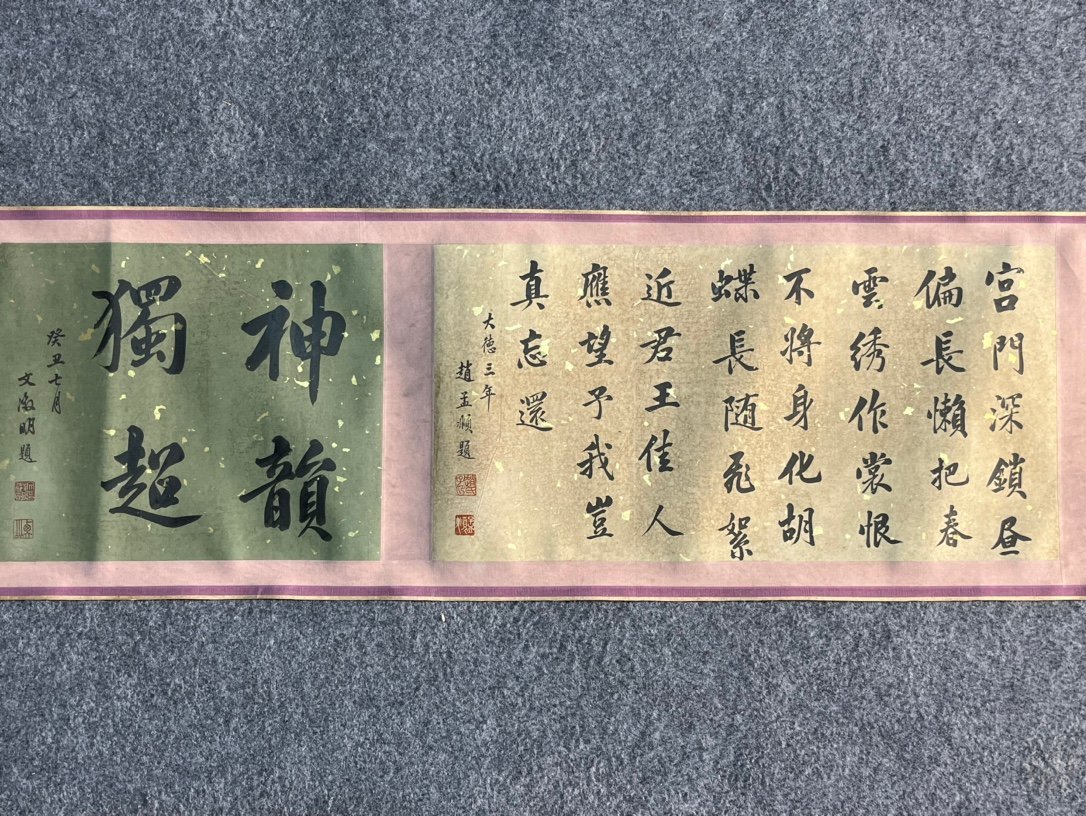 宮門深鎖昼
偏長懶把春
雲绣作裳恨
不將身化胡
蝶長随飛絮
近君王佳人
應望予我豈
真忘還
大德三年
趙孟頫題
神韻
獨超
癸丑七月
文徵明題